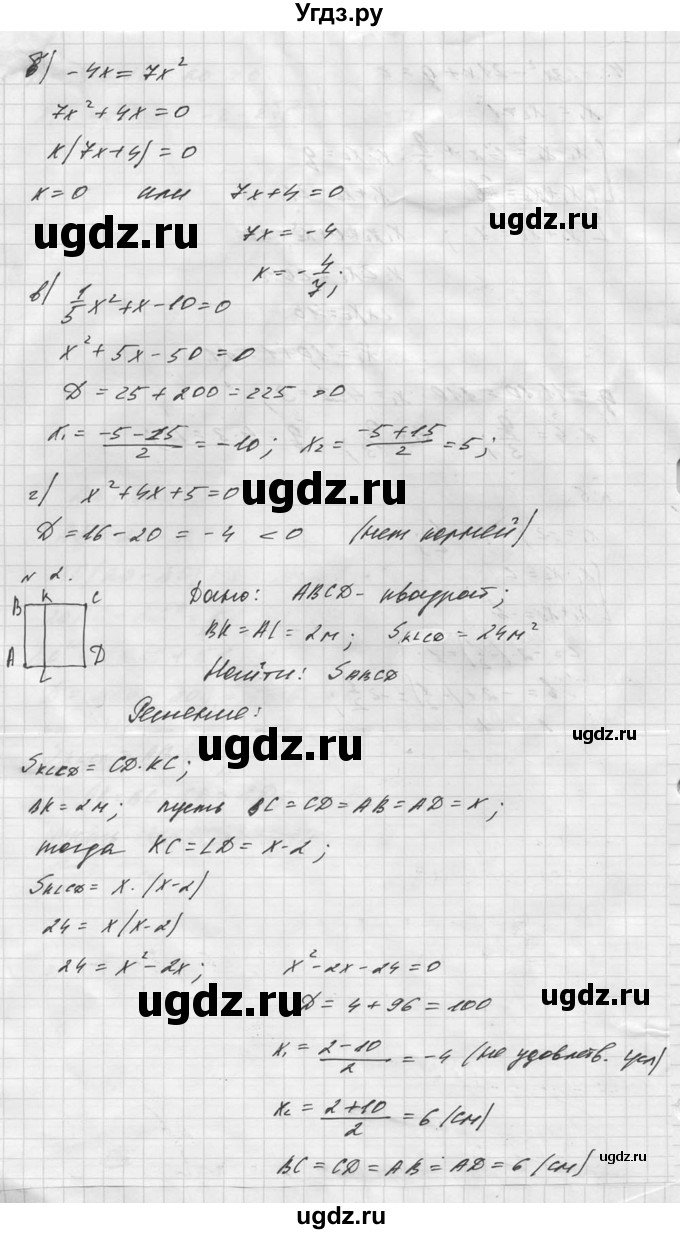 Угдз.ру
б) -4x = 7x²
7x² + 4x = 0
x(7x+4) = 0
x = 0 или 7x+4 = 0
ugdz.ru
ugdz.ru
7x = -4
x = -4/7;
в) 1/5 x² + x - 10 = 0
x² + 5x - 50 = 0
D = 25 + 200 = 225 >0
x₁ = (-5-15)/2 = -10; x₂ = (-5+15)/2 = 5;
г) x² + 4x + 5 = 0
ugdz.ru
ugdz.ru
D = 16 - 20 = -4 < 0 (нет корней)
N 2.
B K C
A L D
Дано: ABCD - квадрат;
BK = AL = 2м; SKLCD = 24м²
Найти: SABCD
Решение:
ugdz.ru
ugdz.ru
SKLCD = CD·KC;
BK = 2м; пусть BC = CD = AB = AD = x;
тогда KC = LD = x - 2;
SKLCD = x·(x-2)
24 = x(x-2)
24 = x² - 2x; x² - 2x - 24 = 0
ugdz.ru
ugdz.ru
D = 4 + 96 = 100
x₁ = (2-10)/2 = -4 (не удовлетв. усл)
x₂ = (2+10)/2 = 6 (см)
BC = CD = AB = AD = 6 (см)
ugdz.ru
ugdz.ru